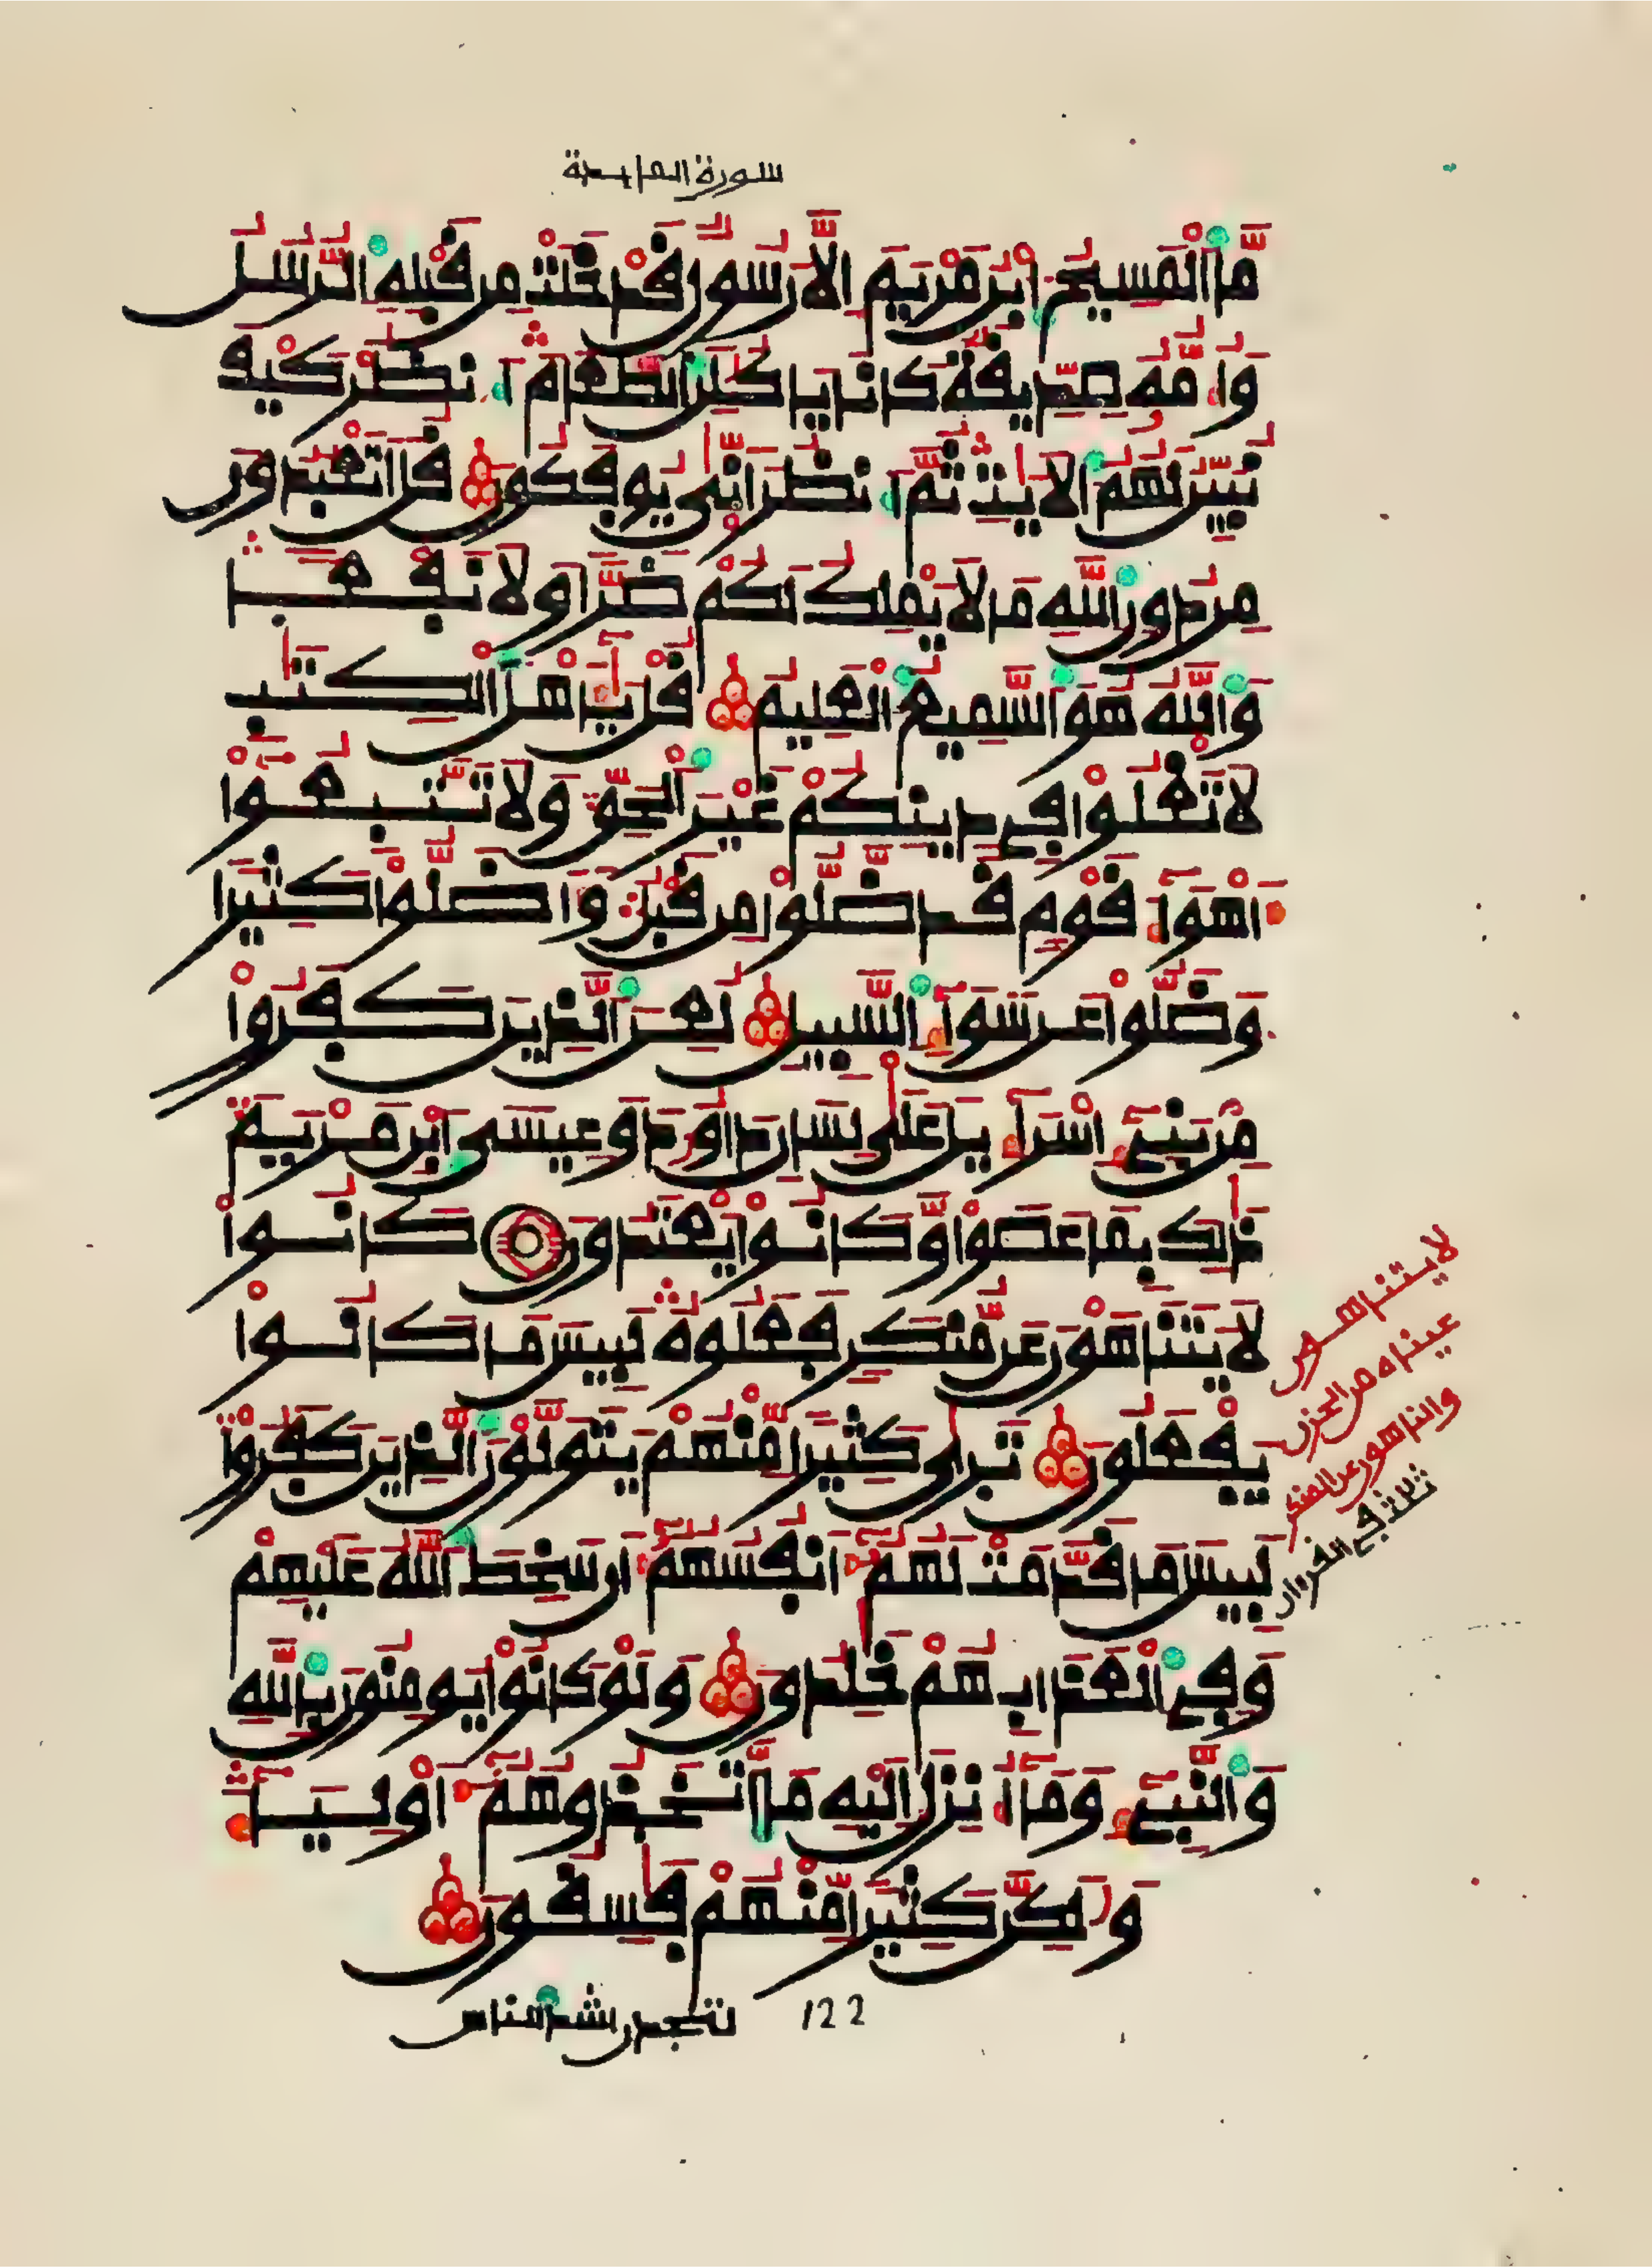 سورة المايدة
مَّا اَ۬لْمَسِيحُ اُ۪بْنُ مَرْيَمَ إِلَّا رَسُولٌ قَدْ خَلَتْ مِن قَبْلِهِ اِ۬لرُّسُلُ
وَأُمُّهُۥ صِدِّيقَةٌ كَانَا يَاكُلَٰنِ اِ۬لطَّعَامَ اَ۟نظُرْ كَيْفَ
نُبَيِّنُ لَهُمُ اُ۬لَايَٰتِ ثُمَّ اَ۟نظُرْ أَنّٰى يُوفَكُونَ قُلَ اَتَعْبُدُونَ
مِن دُونِ اِ۬للَّهِ مَا لَا يَمْلِكُ لَكُمْ ضَرّاً وَلَا نَفْعاً
وَاللَّهُ هُوَ اَ۬لسَّمِيعُ اُ۬لْعَلِيمُ قُلْ يَٰٓأَهْلَ اَ۬لْكِتَٰبِ
لَا تَغْلُواْ فِي دِينِكُمْ غَيْرَ اَ۬لْحَقِّ وَلَا تَتَّبِعُوٓاْ
أَهْوَآءَ قَوْمٍ قَد ضَّلُّواْ مِن قَبْلُ وَأَضَلُّواْ كَثِيراً
وَضَلُّواْ عَن سَوَآءِ اِ۬لسَّبِيلِ لُعِنَ اَ۬لذِينَ كَفَرُواْ
مِنۢ بَنِيٓ إِسْرَآءِيلَ عَلَىٰ لِسَانِ دَاوُۥدَ وَعِيسَى اَ۪بْنِ مَرْيَمَ
ذَٰلِكَ بِمَا عَصَواْ وَّكَانُواْ يَعْتَدُونَ كَانُواْ
لَا يَتَنَاهَوْنَ عَن مُّنكَرٍ فَعَلُوهُ لَبِيسَ مَا كَانُواْ
يَفْعَلُونَ تَرَىٰ كَثِيراً مِّنْهُمْ يَتَوَلَّوْنَ اَ۬لذِينَ كَفَرُواْ
لَبِيسَ مَا قَدَّمَتْ لَهُمُۥٓ أَنفُسُهُمُۥٓ أَن سَخِطَ اَ۬للَّهُ عَلَيْهِمْ
وَفِي اِ۬لْعَذَابِ هُمْ خَٰلِدُونَ وَلَوْ كَانُواْ يُومِنُونَ بِاللَّهِ
وَالنَّبِيٓءِ وَمَآ أُنزِلَ إِلَيْهِ مَا اَ۪تَّخَذُوهُمُۥٓ أَوْلِيَآءَ
وَلَٰكِنَّ كَثِيراً مِّنْهُمْ فَٰسِقُونَ
122 لتجدن أشد الناس
لا يتناهون
عيناه من الحزن
والناهون عن المنكر
ثلاث في القرءان